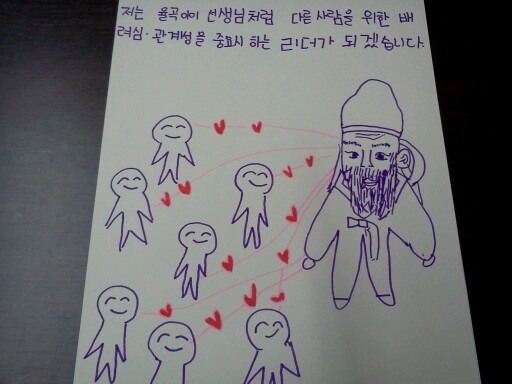 저는 율곡이이 선생님처럼 다른사람을 위한 배
려심·관계성을 중요시 하는 리더가 되겠습니다.